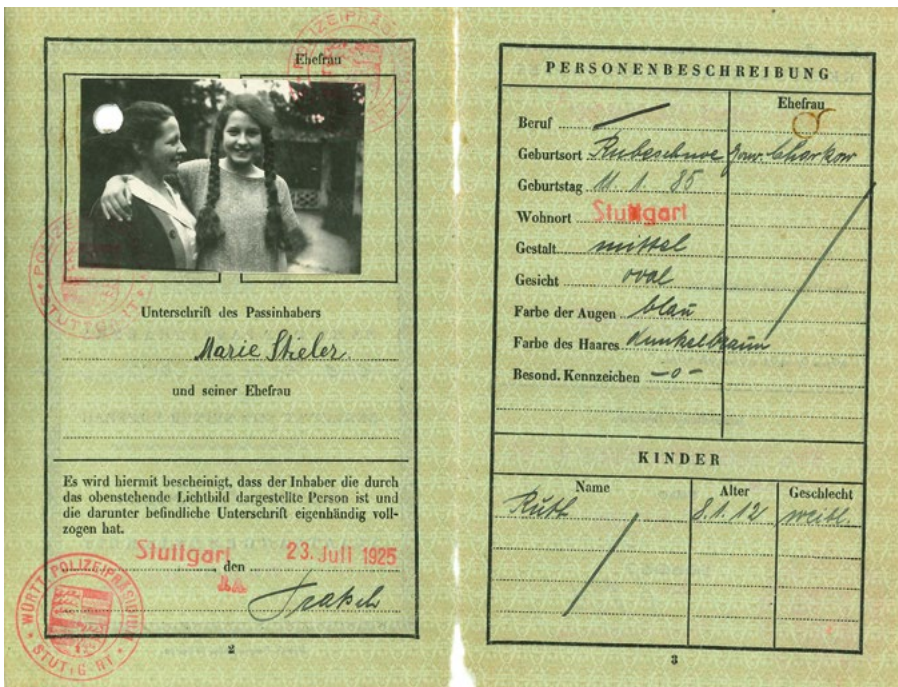 Ehefrau
Unterschrift des Passinhabers
Marie Stieler.
und seiner Ehefrau
Es wird hiermit bescheinigt, dass der Inhaber die durch
das obenstehende Lichtbild dargestellte Person ist und
die darunter befindliche Unterschrift eigenhändig voll-
zogen hat.
Stuttgart den 23. Juli 1925
WÜRTT. POLIZEIPRÄSIDIUM
2
PERSONENBESCHREIBUNG
Ehefrau
Beruf
Geburtsort Rubeschnoe Gouv. Charkow
Geburtstag 11. 1. 85
Wohnort Stuttgart
Gestalt mittel
Gesicht oval
Farbe der Augen blau
Farbe des Haares dunkelbraun
Besond. Kennzeichen -o-
KINDER
Name Alter Geschlecht
Ruth 8.1.12 weibl.
3